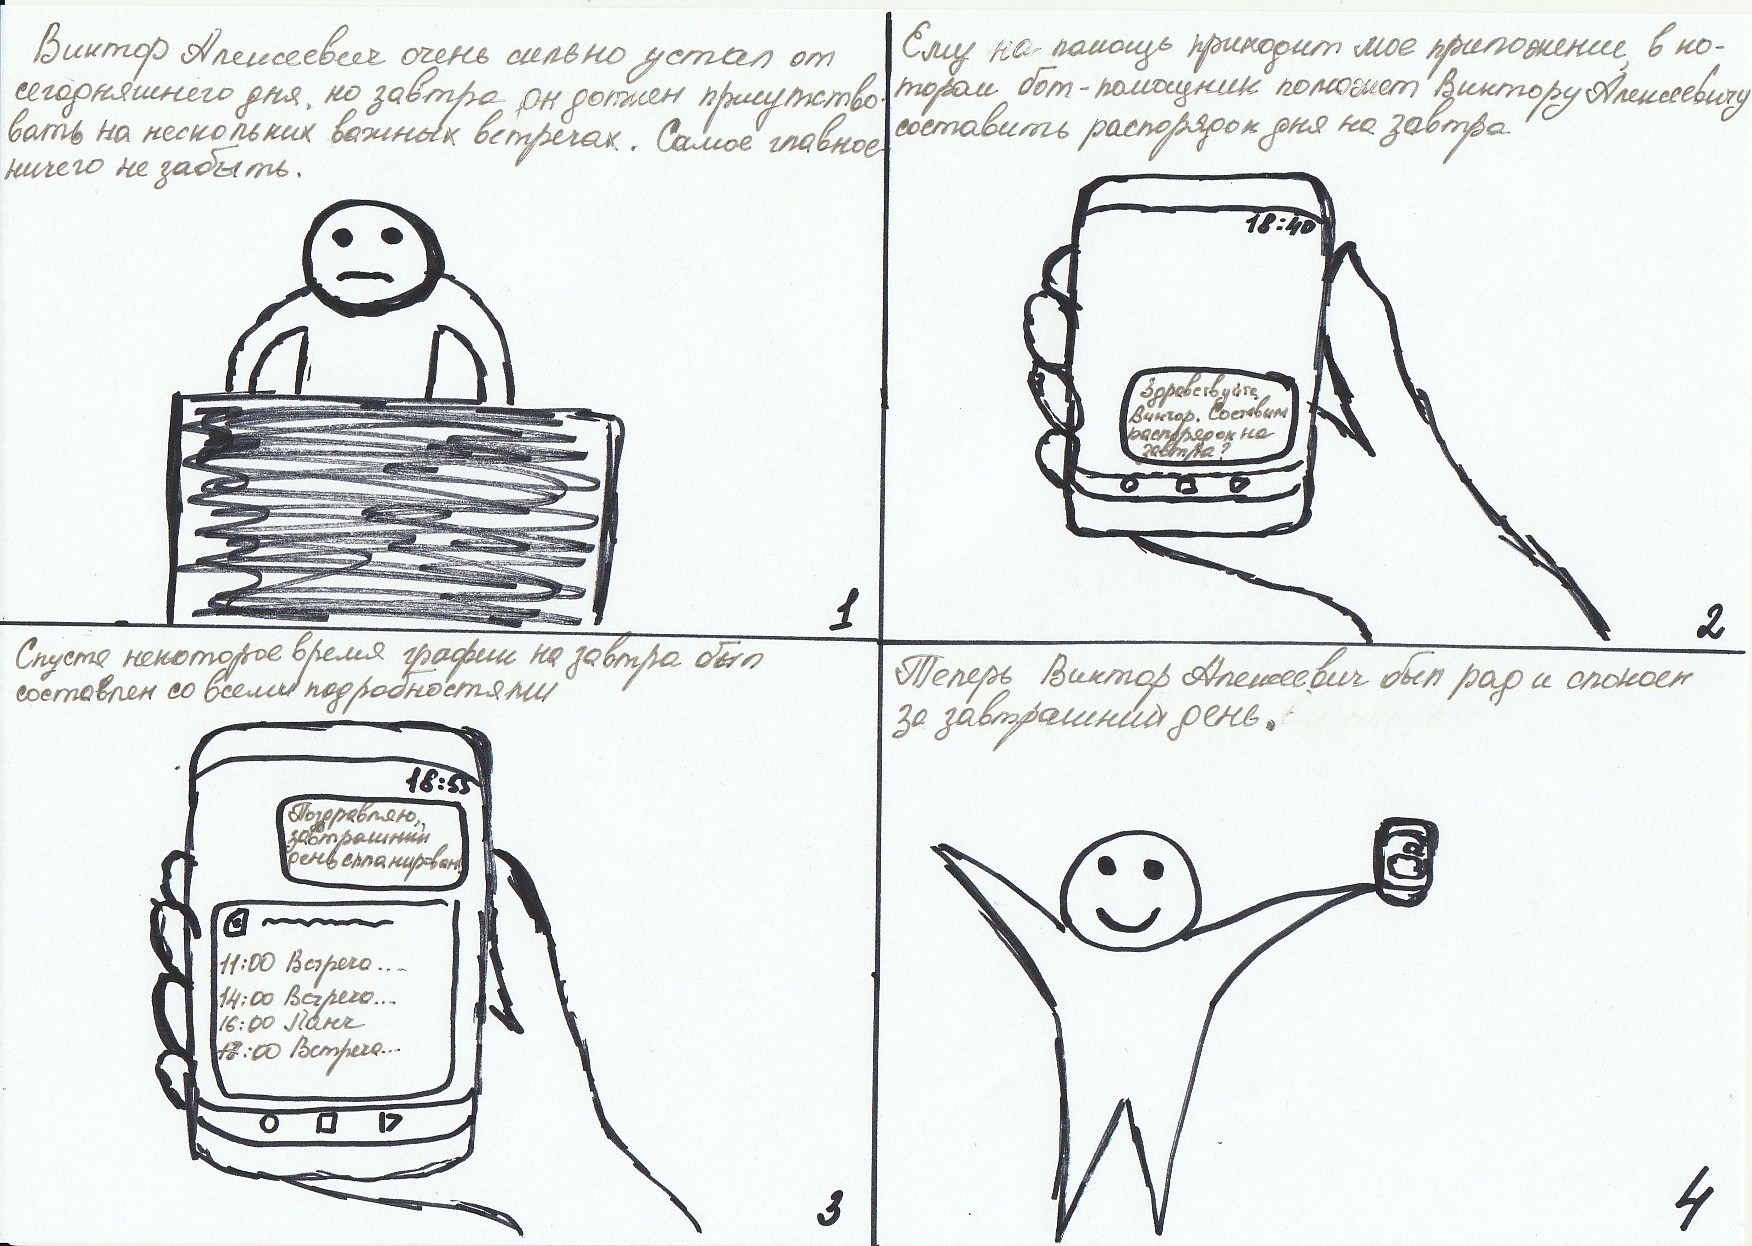 Виктор Алексеевич очень сильно устал от
сегодняшнего дня, но завтра он должен присутство-
вать на нескольких важных встречах. Самое главное
ничего не забыть.
1
Ему на помощь приходит мое приложение, в ко-
тором бот-помощник поможет Виктору Алексеевичу
составить распорядок дня на завтра
18:40
Здравствуйте,
Виктор. Составим
распорядок на
завтра?
2
Спустя некоторое время график на завтра был
составлен со всеми подробностями
18:55
Поздравляю,
завтрашний
день спланирован
11:00 Встреча...
14:00 Встреча...
16:00 Ланч
18:00 Встреча...
3
Теперь Виктор Алексеевич был рад и спокоен
за завтрашний день.
4